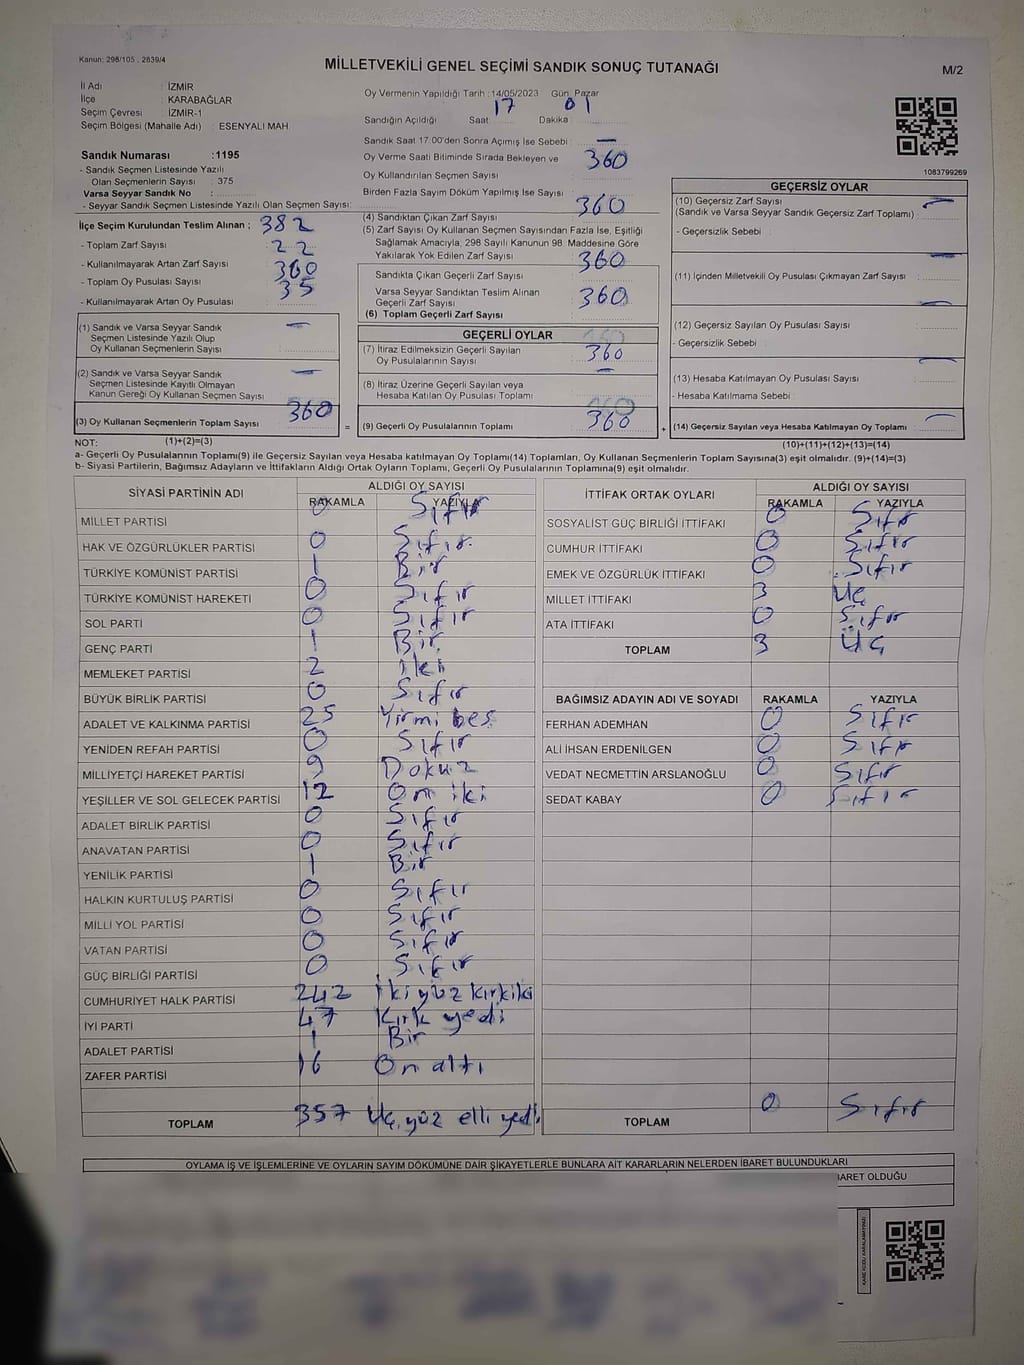 Kanun: 298/105 , 2839/4
MİLLETVEKİLİ GENEL SEÇİMİ SANDIK SONUÇ TUTANAĞI
M/2
İl Adı : İZMİR
İlçe : KARABAĞLAR
Seçim Çevresi : İZMİR-1
Seçim Bölgesi (Mahalle Adı) : ESENYALI MAH
Sandık Numarası :1195
- Sandık Seçmen Listesinde Yazılı
Olan Seçmenlerin Sayısı : 375
Varsa Seyyar Sandık No :
- Seyyar Sandık Seçmen Listesinde Yazılı Olan Seçmen Sayısı:
Oy Vermenin Yapıldığı Tarih :14/05/2023 Gün: Pazar
Sandığın Açıldığı Saat 17 Dakika : 01
Sandık Saat 17:00'den Sonra Açımış İse Sebebi : —
Oy Verme Saati Bitiminde Sırada Bekleyen ve
Oy Kullandırılan Seçmen Sayısı 360
Birden Fazla Sayım Döküm Yapılmış İse Sayısı :
1083799269
İlçe Seçim Kurulundan Teslim Alınan : 382
- Toplam Zarf Sayısı : 22
- Kullanılmayarak Artan Zarf Sayısı : 360
- Toplam Oy Pusulası : 35
- Kullanılmayarak Artan Oy Pusulası :
(1) Sandık ve Varsa Seyyar Sandık —
Seçmen Listesinde Yazılı Olup
Oy Kullanan Seçmenlerin Sayısı :
(2) Sandık ve Varsa Seyyar Sandık —
Seçmen Listesinde Kayıtlı Olmayan
Kanun Gereği Oy Kullanan Seçmen Sayısı :
(3) Oy Kullanan Seçmenlerin Toplam Sayısı : 360 =
(4) Sandıktan Çıkan Zarf Sayısı : 360
(5) Zarf Sayısı Oy Kullanan Seçmen Sayısından Fazla İse, Eşitliği
Sağlamak Amacıyla, 298 Sayılı Kanunun 98. Maddesine Göre
Yakılarak Yok Edilen Zarf Sayısı : 360
Sandıkta Çıkan Geçerli Zarf Sayısı :
Varsa Seyyar Sandıktan Teslim Alınan
Geçerli Zarf Sayısı : 360
(6) Toplam Geçerli Zarf Sayısı :
GEÇERLİ OYLAR
(7) İtiraz Edilmeksizin Geçerli Sayılan 360
Oy Pusulalarının Sayısı :
(8) İtiraz Üzerine Geçerli Sayılan veya —
Hesaba Katılan Oy Pusulası Toplamı :
(9) Geçerli Oy Pusulalarının Toplamı : 360 +
GEÇERSİZ OYLAR
(10) Geçersiz Zarf Sayısı —
(Sandık ve Varsa Seyyar Sandık Geçersiz Zarf Toplamı) :
- Geçersizlik Sebebi :
(11) İçinden Milletvekili Oy Pusulası Çıkmayan Zarf Sayısı : —
(12) Geçersiz Sayılan Oy Pusulası Sayısı : —
- Geçersizlik Sebebi :
(13) Hesaba Katılmayan Oy Pusulası Sayısı : —
- Hesaba Katılmama Sebebi :
(14) Geçersiz Sayılan veya Hesaba Katılmayan Oy Toplamı : —
NOT: (1)+(2)=(3) (10)+(11)+(12)+(13)=(14)
a- Geçerli Oy Pusulalarının Toplamı(9) ile Geçersiz Sayılan veya Hesaba Katılmayan Oy Toplamı(14) Toplamları, Oy Kullanan Seçmenlerin Toplam Sayısına(3) eşit olmalıdır. (9)+(14)=(3)
b- Siyasi Partilerin, Bağımsız Adayların ve İttifakların Aldığı Ortak Oyların Toplamı, Geçerli Oy Pusulalarının Toplamına(9) eşit olmalıdır.
SİYASİ PARTİNİN ADI ALDIĞI OY SAYISI
RAKAMLA YAZIYLA
MİLLET PARTİSİ 0 Sıfır
HAK VE ÖZGÜRLÜKLER PARTİSİ 0 Sıfır
TÜRKİYE KOMÜNİST PARTİSİ 1 Bir
TÜRKİYE KOMÜNİST HAREKETİ 0 Sıfır
SOL PARTİ 0 Sıfır
GENÇ PARTİ 1 Bir
MEMLEKET PARTİSİ 2 iki
BÜYÜK BİRLİK PARTİSİ 0 Sıfır
ADALET VE KALKINMA PARTİSİ 25 Yirmi beş
YENİDEN REFAH PARTİSİ 0 Sıfır
MİLLİYETÇİ HAREKET PARTİSİ 9 Dokuz
YEŞİLLER VE SOL GELECEK PARTİSİ 12 On iki
ADALET BİRLİK PARTİSİ 0 Sıfır
ANAVATAN PARTİSİ 0 Sıfır
YENİLİK PARTİSİ 1 Bir
HALKIN KURTULUŞ PARTİSİ 0 Sıfır
MİLLİ YOL PARTİSİ 0 Sıfır
VATAN PARTİSİ 0 Sıfır
GÜÇ BİRLİĞİ PARTİSİ 0 Sıfır
CUMHURİYET HALK PARTİSİ 242 İki yüz kırkiki
İYİ PARTİ 47 Kırk yedi
ADALET PARTİSİ 1 Bir
ZAFER PARTİSİ 16 On altı
TOPLAM 357 Üç yüz elli yedi
İTTİFAK ORTAK OYLARI ALDIĞI OY SAYISI
RAKAMLA YAZIYLA
SOSYALİST GÜÇ BİRLİĞİ İTTİFAKI 0 Sıfır
CUMHUR İTTİFAKI 0 Sıfır
EMEK VE ÖZGÜRLÜK İTTİFAKI 0 Sıfır
MİLLET İTTİFAKI 3 Üç
ATA İTTİFAKI 0 Sıfır
TOPLAM 3 Üç
BAĞIMSIZ ADAYIN ADI VE SOYADI RAKAMLA YAZIYLA
FERHAN ADEMHAN 0 Sıfır
ALİ İHSAN ERDENİLGEN 0 Sıfır
VEDAT NECMETTİN ARSLANOĞLU 0 Sıfır
SEDAT KABAY 0 Sıfır
TOPLAM 0 Sıfır
OYLAMA İŞ VE İŞLEMLERİNE VE OYLARIN SAYIM DÖKÜMÜNE DAİR ŞİKAYETLERLE BUNLARA AİT KARARLARIN NELERDEN İBARET BULUNDUKLARI
BARET OLDUĞU
KARE KODU KARALAMAYINIZ!